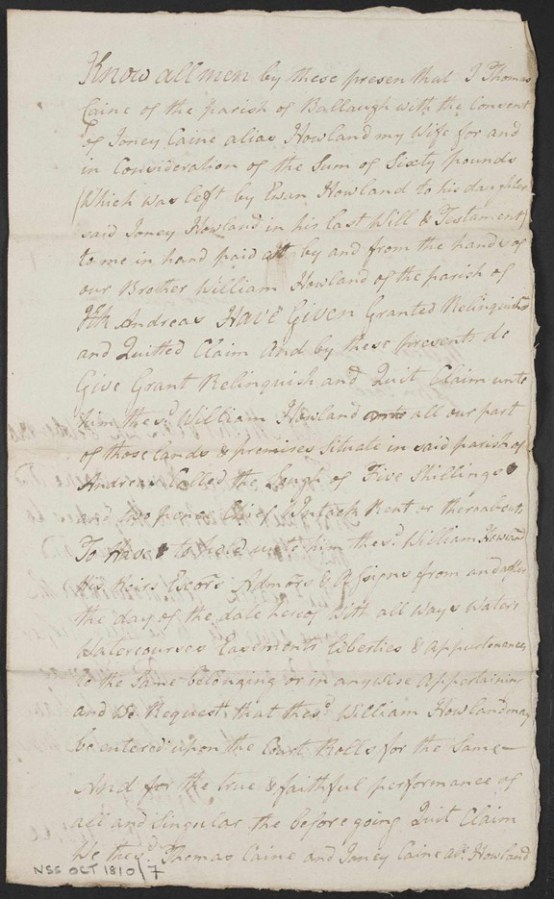 Know all men by these presen that I Thomas
Caine of the parish of Ballaugh with the Consent
of Joney Caine alias Howland my Wife for and
in Consideration of the Sum of Sixty pounds
(Which was left by Ewan Howland to his daughter
said Joney Howland in his last Will & Testament)
to me in hand paid att by and from the hands of
our Brother William Howland of the parish of
Andreas Have Given Granted Relinquishd
and Quitted Claim And by these presents do
Give Grant Relinquish and Quit Claim unto
him the sd. William Howland unto all our part
of those lands & premises Situate in said parish of
Andreas Called the Lough of Five Shillings &
two pence Chief Intack Rent or thereabouts
To have & to hold unto him the sd. William Howland
His heirs Execors Admors & Assigns from and after
the day of the date hereof With all Ways Waters
Watercourses Easements Liberties & Appurtenances
to the Same belonging or in anywise Appertainin
and We Request that the sd. William Howland may
be entered upon the Court Rolls for the Same—
And for the true & faithful performance of
all and Singular the before going Quit Claim
We the sd. Thomas Caine and Joney Caine als. Howland
NSS OCT 1810/7